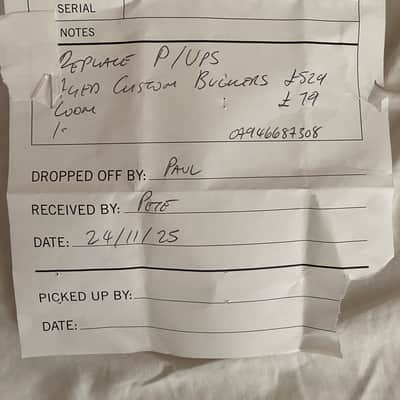 SERIAL
NOTES
REPLACE P/UPS
CUSTOM BUCKERS £529
LOOM £79
07946687308
DROPPED OFF BY: PAUL
RECEIVED BY: PETE
DATE: 24/11/25
PICKED UP BY:
DATE: